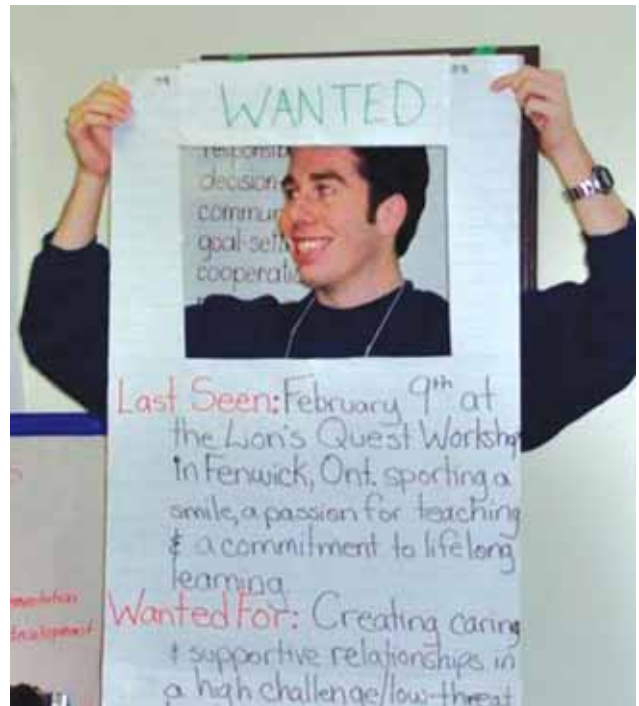 WANTED
decision
commun
goal-sett
cooperatio
Last Seen: February 9th at
the Lion's Quest Worksho
in Fenwick, Ont. sporting a
smile, a passion for teaching
& a commitment to lifelong
learning
Wanted For: Creating caring
& supportive relationships in
a high challenge/low-threat